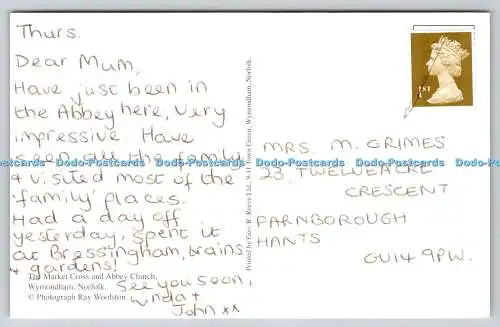 Thurs.
Dear Mum,
Have just been in
the Abbey here, very
impressive. Have
seen all the family
& visited most of the
'family' places.
Had a day off
yesterday, spent it
at Bressingham, trains
& gardens!
See you soon,
Linda +
John xx
The Market Cross and Abbey Church,
Wymondham, Norfolk.
© Photograph Ray Woolston
Printed by Geo. R. Reeve Ltd., 9-11 Town Green, Wymondham, Norfolk.
1ST
MRS. M. GRIMES
23, TWELVEACRE
CRESCENT
FARNBOROUGH
HANTS
GU14 9PW.
Dodo-Postcards Dodo-Postcards Dodo-Postcards Dodo-Postcards Dodo-Postcards